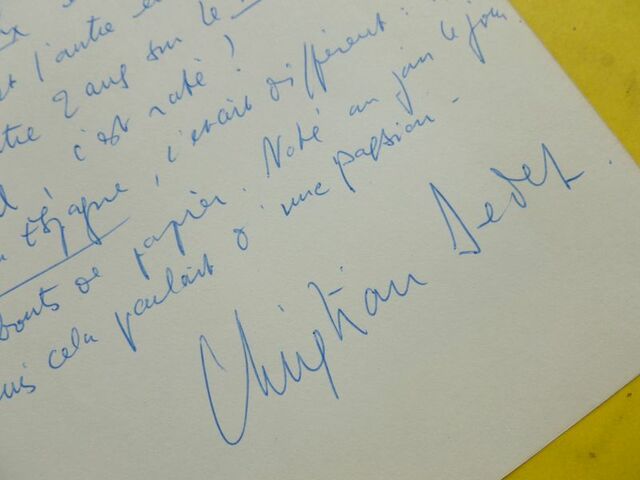 l'autre
2 ans sur le
c'est raté !
Espagne, c'était différent :
bouts de papier. Noté au jour le jour.
cela parlait d'une passion -
Christian Dedet.